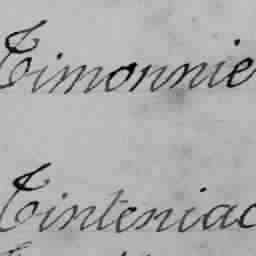 Timonnie
Tinteniac